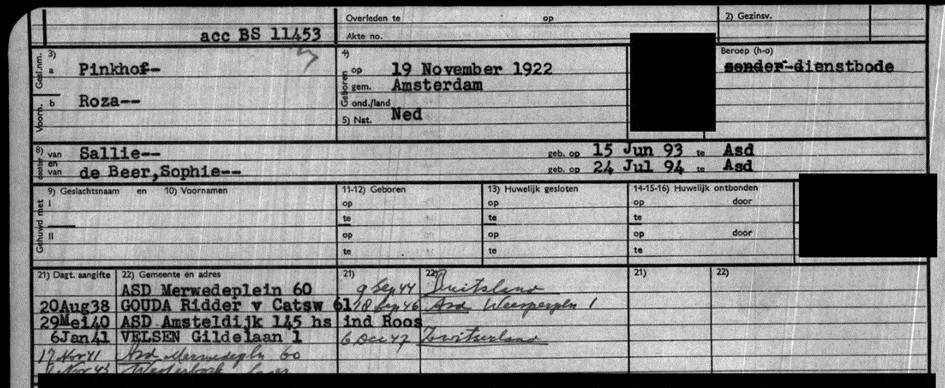 Overleden te op 2) Gezinsv.
acc BS 11453 Akte no.
3) 4) Beroep (h-o)
Gesl.nm. a Pinkhof- Geboren op 19 November 1922 zonder-dienstbode
gem. Amsterdam
Voorn. b Roza-- ond./land
5) Nat. Ned
8) van Sallie-- geb. op 15 Jun 93 te Asd
en van de Beer,Sophie-- geb. op 24 Jul 94 te Asd
9) Geslachtsnaam en 10) Voornamen 11-12) Geboren 13) Huwelijk gesloten 14-15-16) Huwelijk ontbonden
Gehuwd met I op op op door
te te te
II op op op door
te te te
21) Dagt. aangifte 22) Gemeente en adres 21) 22) 21) 22)
ASD Merwedeplein 60 9 Sep 44 Duitsland
20Aug38 GOUDA Ridder v Catsw 61 18 Sep 46 Asd Weesperpln 1
29Mei40 ASD Amsteldijk 145 hs ind Roos
6Jan41 VELSEN Gildelaan 1 6 Dec 47 Zwitserland
17 Nov 41 Asd Merwedepln 60
Nov 43 Westerbork